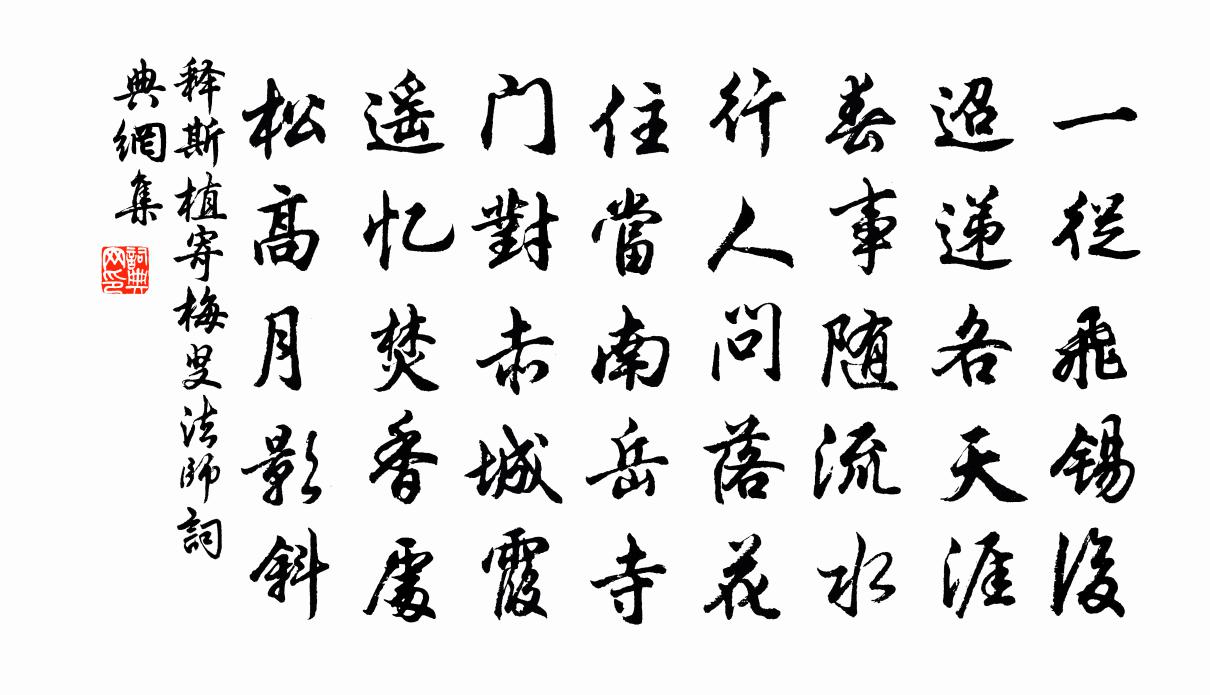 一從飛錫後
迢递各天涯
春事随流水
行人问落花
住當南岳寺
门對赤城霞
遥忆焚香處
松高月影斜
释斯植寄梅叟法師詞
典網集
詞典
网印